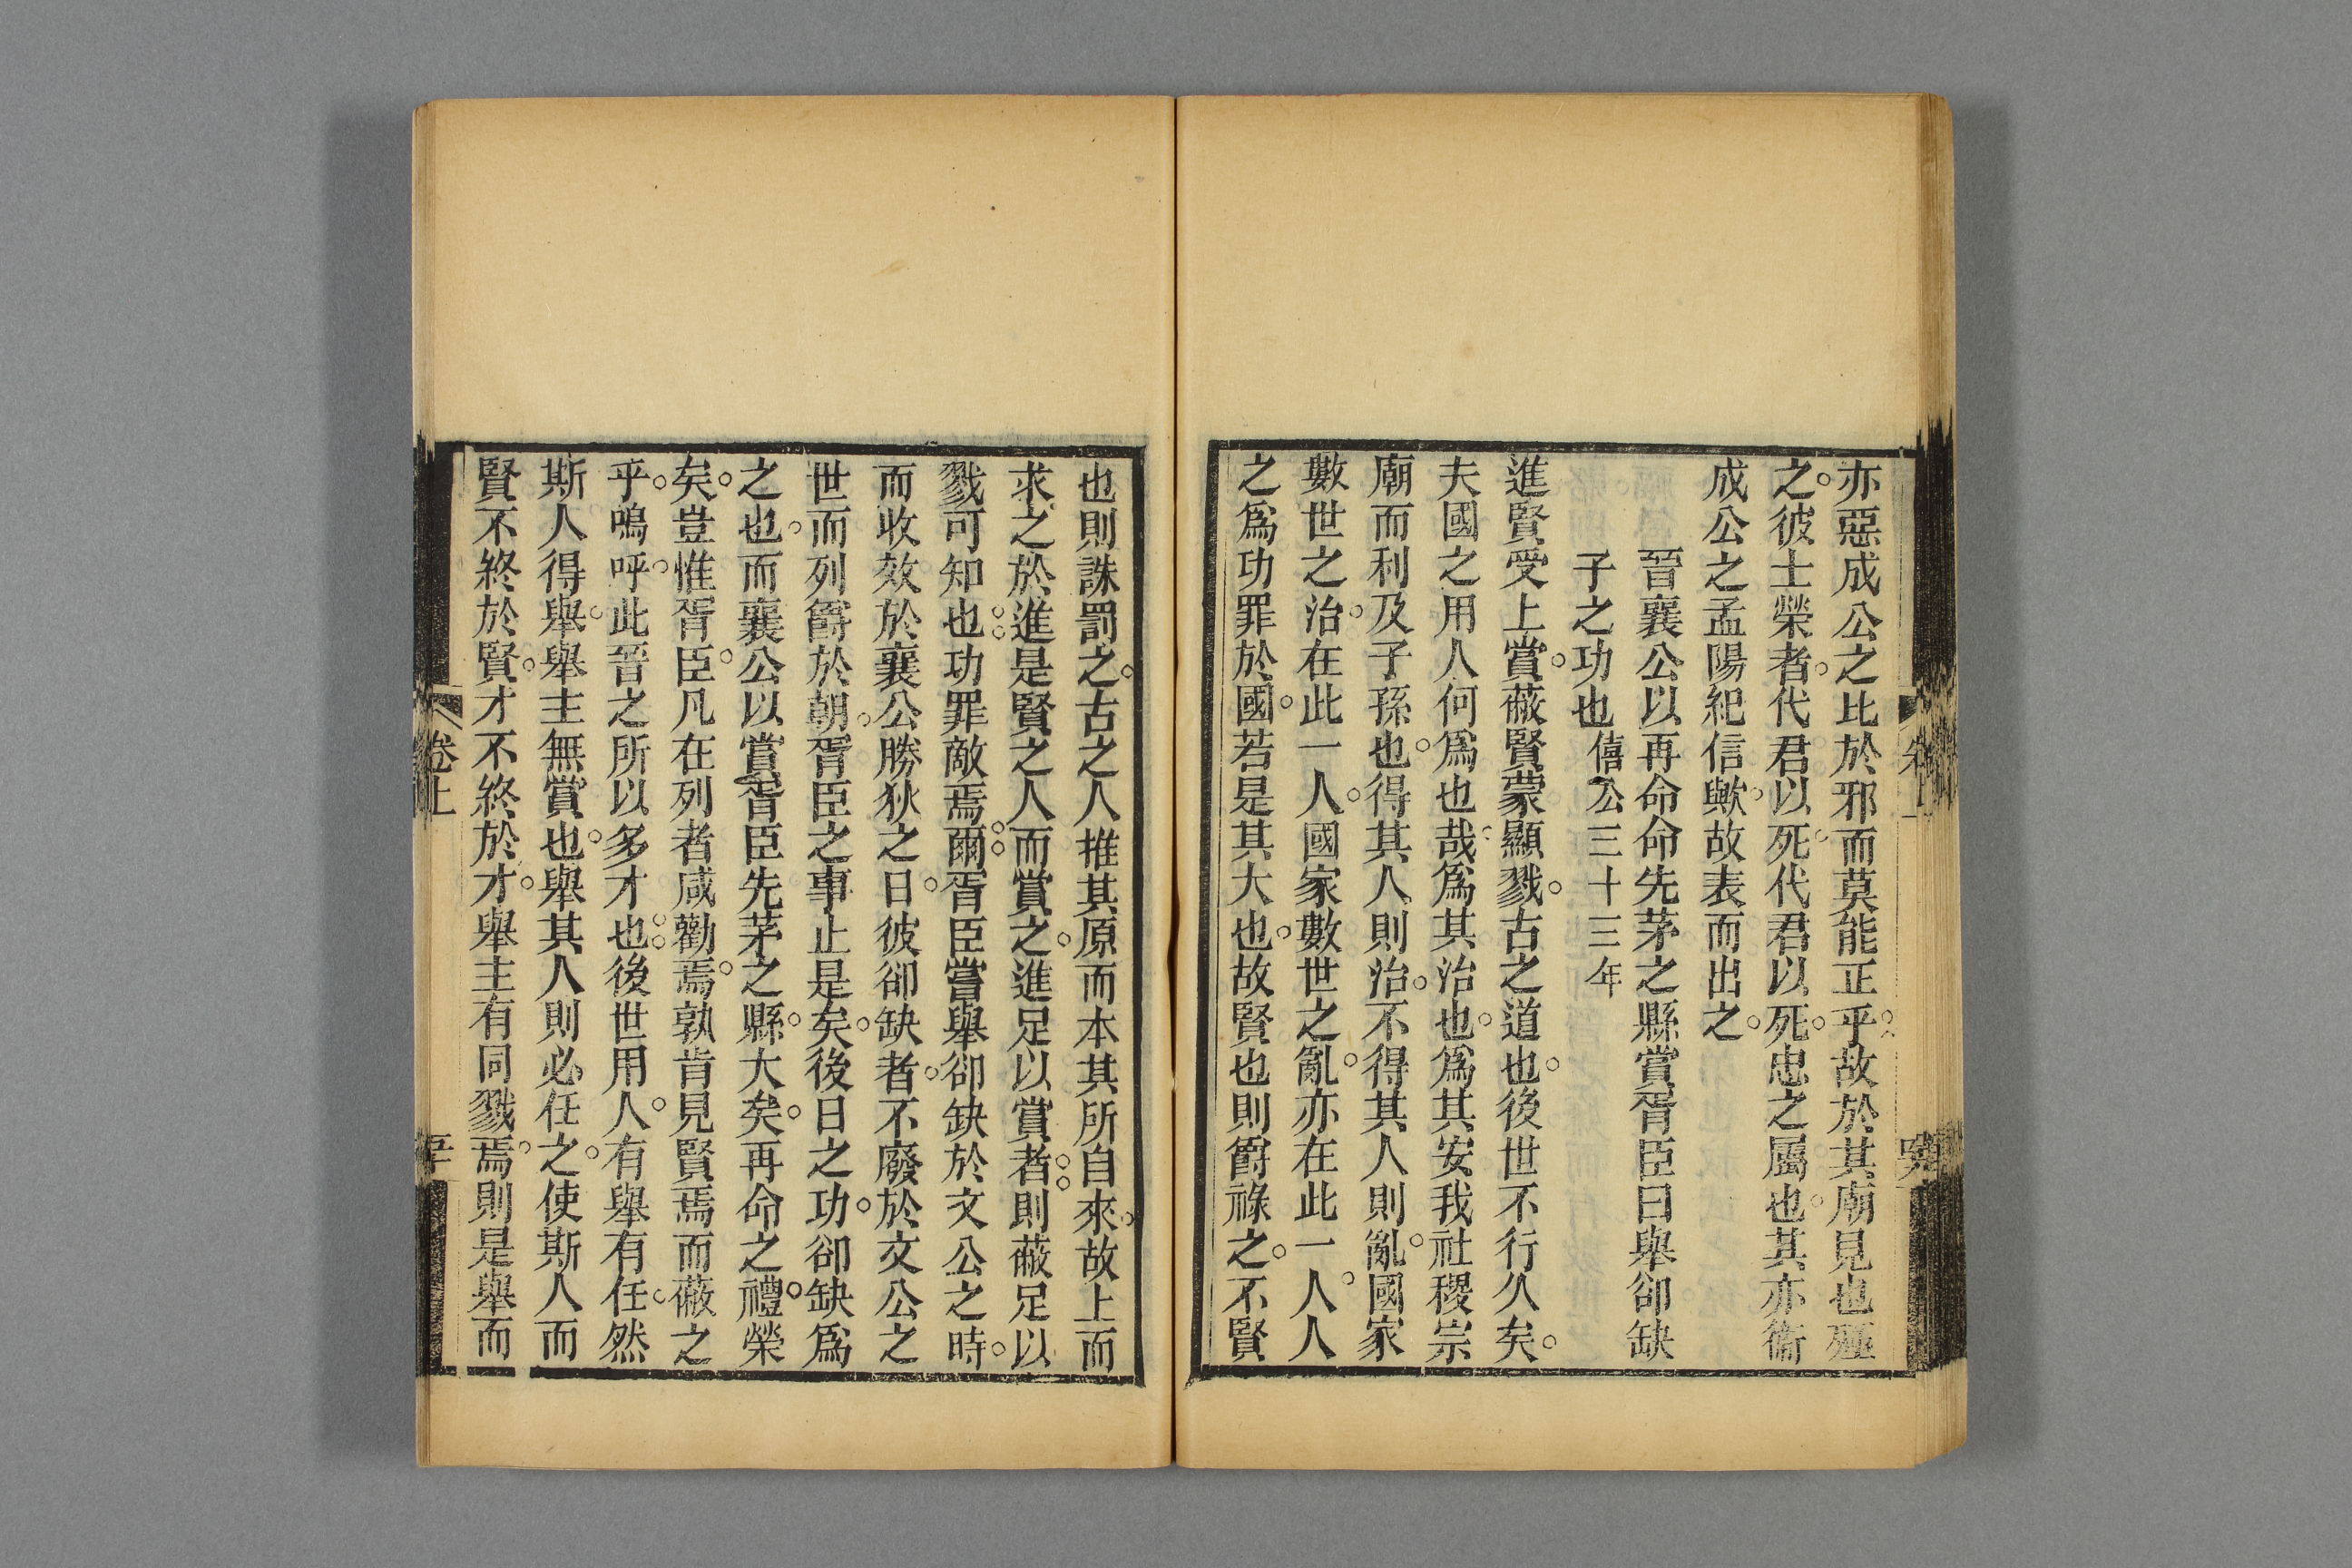 亦惡成公之比於邪而莫能正乎故於其廟見也殛
之彼士榮者代君以死代君以死忠之屬也其亦衞
成公之孟陽紀信歟故表而出之
晉襄公以再命命先茅之縣賞胥臣曰舉郤缺
子之功也僖公三十三年
進賢受上賞蔽賢蒙顯戮古之道也後世不行久矣
夫國之用人何爲也哉爲其治也爲其安我社稷宗
廟而利及子孫也得其人則治不得其人則亂國家
數世之治在此一人國家數世之亂亦在此一人人
之爲功罪於國若是其大也故賢也則爵祿之不賢
也則誅罰之古之人推其原而本其所自來故上而
求之於進是賢之人而賞之進足以賞者則蔽足以
戮可知也功罪敵焉爾胥臣嘗舉郤缺於文公之時
而收效於襄公勝狄之日彼郤缺者不廢於文公之
世而列爵於朝胥臣之事止是矣後日之功郤缺爲
之也而襄公以賞胥臣先茅之縣大矣再命之禮榮
矣豈惟胥臣凡在列者咸勸焉孰肯見賢焉而蔽之
乎嗚呼此晉之所以多才也後世用人有舉有任然
斯人得舉舉主無賞也舉其人則必任之使斯人而
賢不終於賢才不終於才舉主有同戮焉則是舉而
卷上